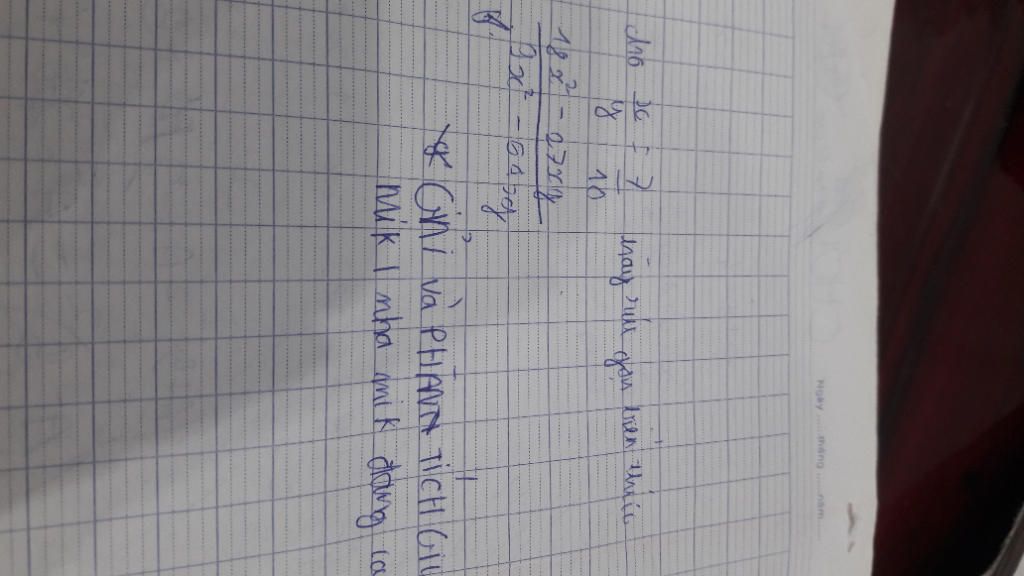 cho x/y = 7/10 hãy rút gọn biểu thức
18x² - 27xy
9x² - 51xy
GHi và PHÂN TÍCH GIÚ
mik nha mik đang cầ
Ngày ..... tháng ..... năm .....